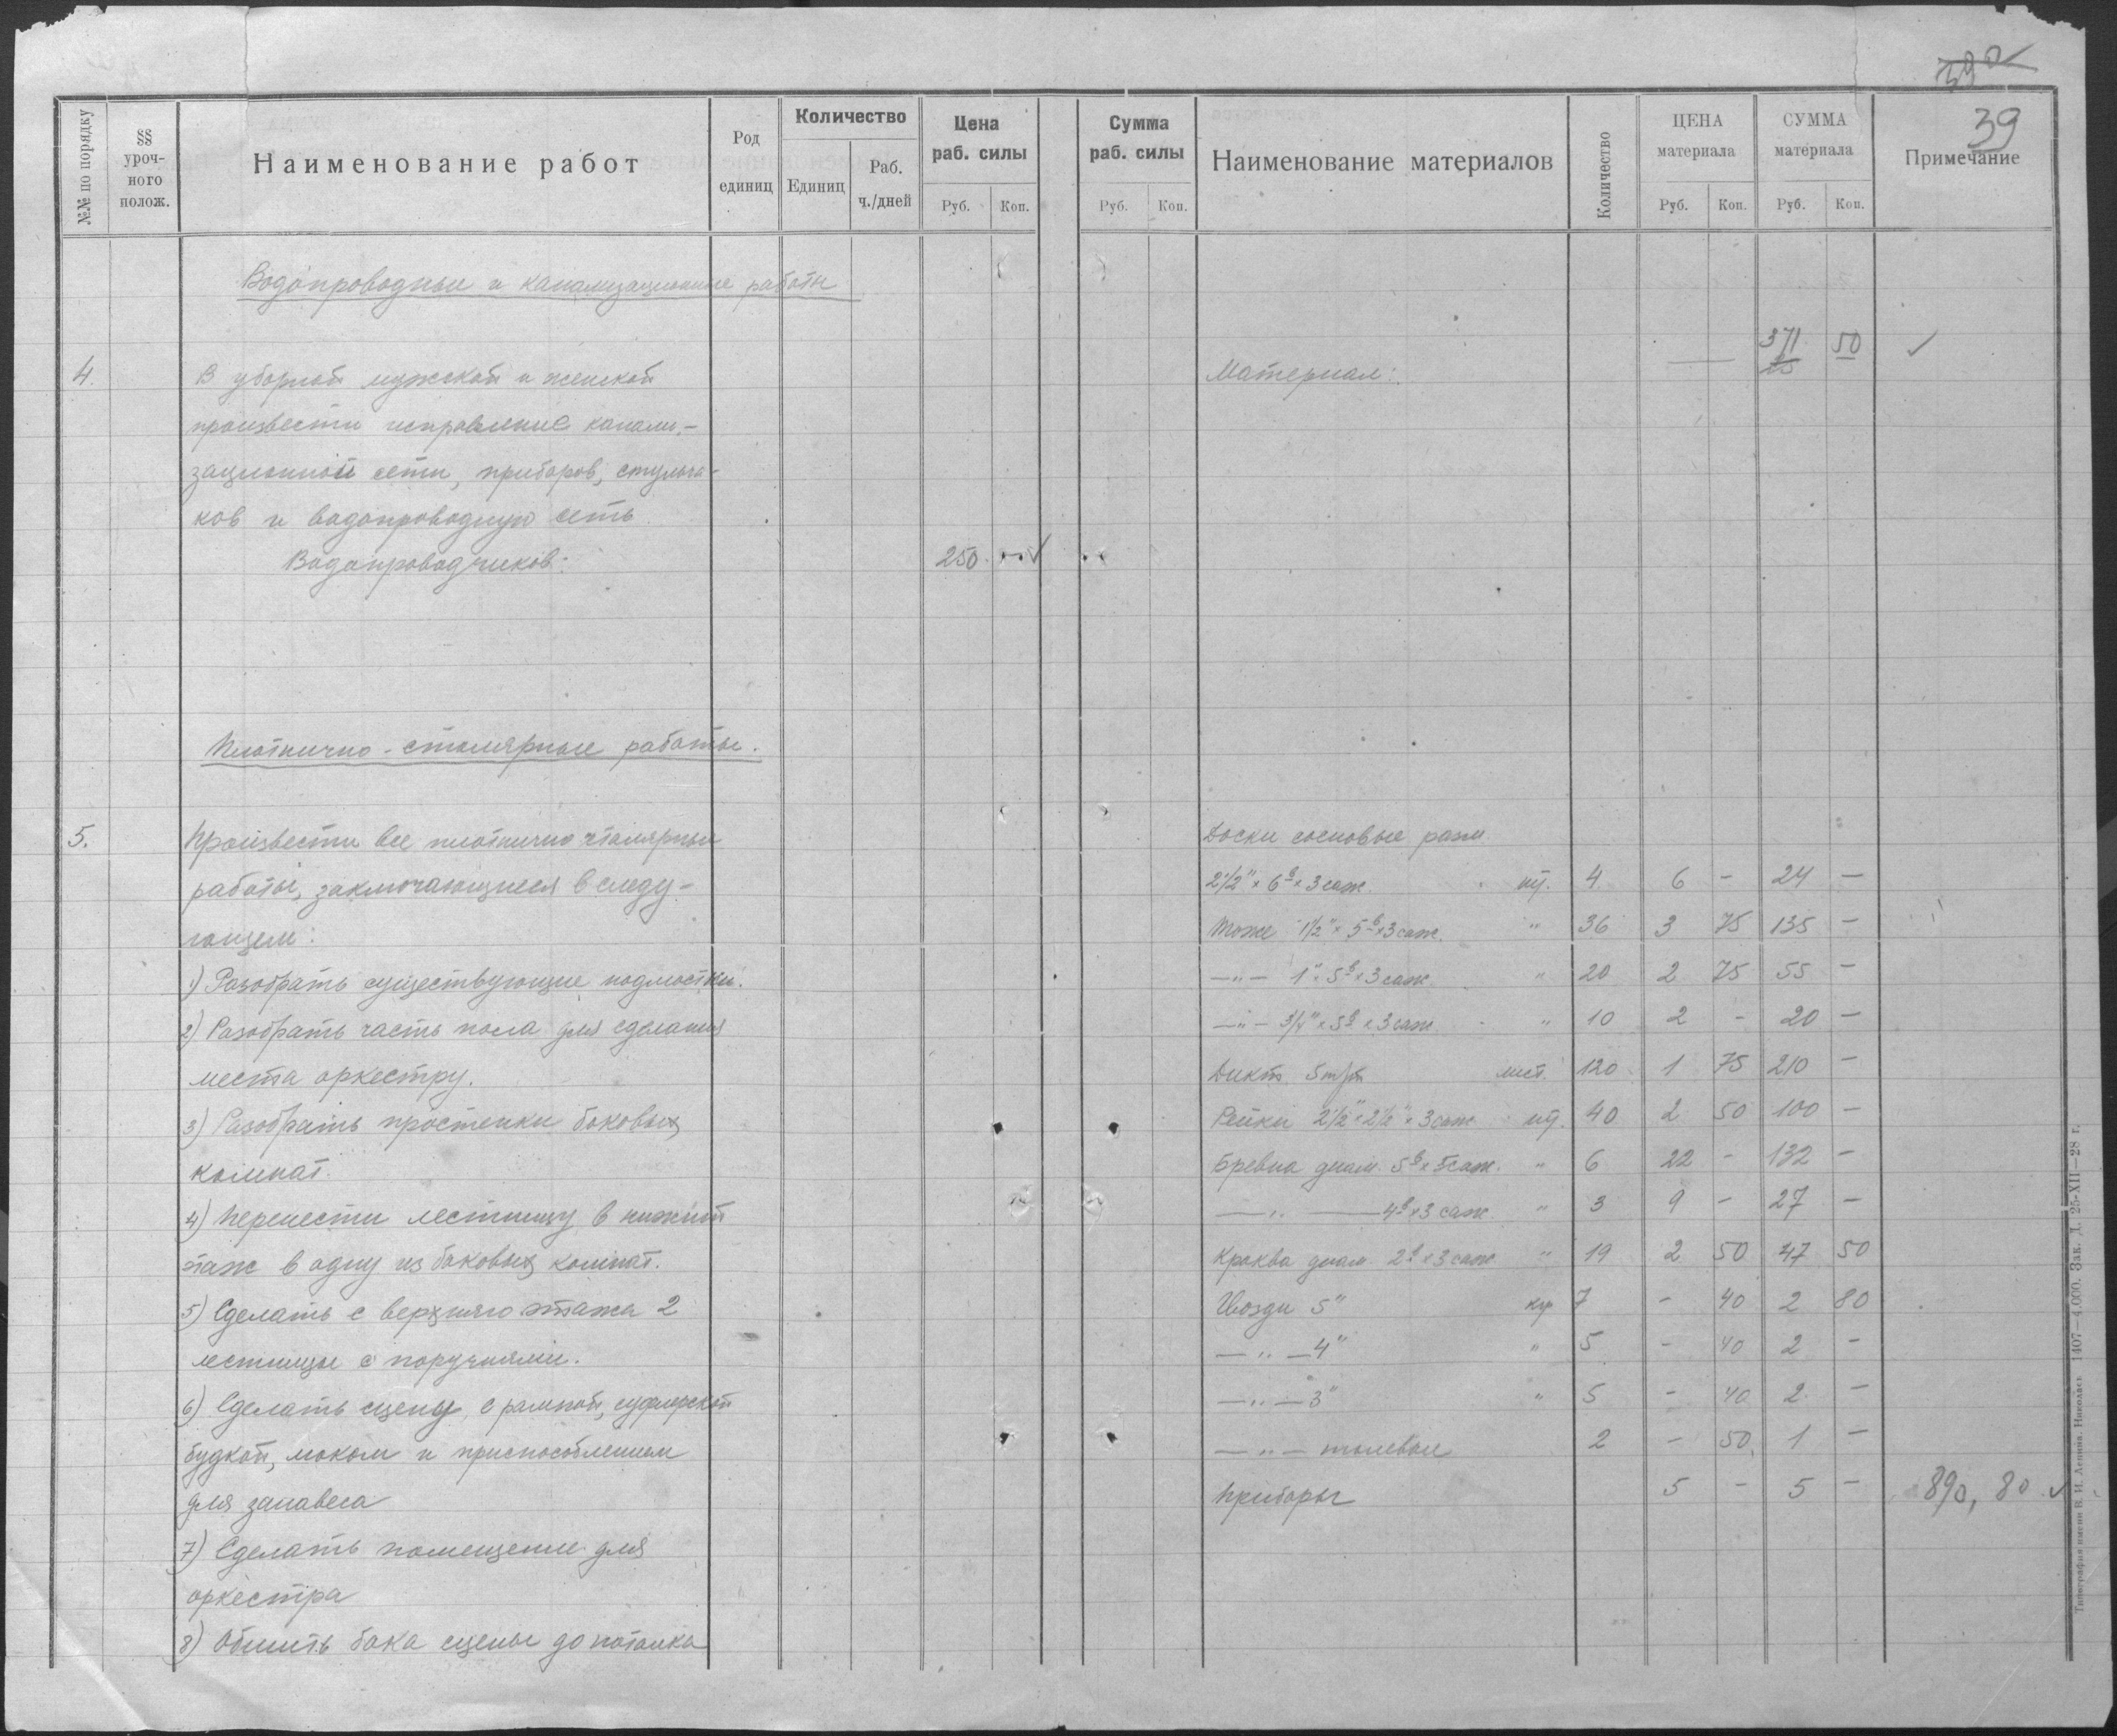 39
39
№№ по порядку
§§ уроч-ного полож.
Наименование работ
Род единиц
Количество
Единиц
Раб. ч./дней
Цена раб. силы
Руб. Коп.
Сумма раб. силы
Руб. Коп.
Наименование материалов
Количество
ЦЕНА материала
Руб. Коп.
СУММА материала
Руб. Коп.
Примечание
Водопроводные и канализационные работы
371 50 ✓
4. В уборной мужской и женской Материал:
произвести исправление канали-
зационной сети, приборов, стульча-
ков и водопроводную сеть
Водопроводчиков: 250 ✓
Плотнично-столярные работы.
5. Произвести все плотнично столярные
работы, заключающиеся в следу-
ющем:
1) Разобрать существующие подмостки.
2) Разобрать часть пола для сделания
места оркестру.
3) Разобрать простенки боковых
комнат.
4) Перенести лестницу в нижний
этаж в одну из боковых комнат.
5) Сделать с верхняго этажа 2
лестницы с поручнями.
6) Сделать сцену, с рампой, суфлерской
будкой, люком и приспособлением
для занавеса
7) Сделать помещение для
оркестра
8) Обшить бока сцены до потолка
Доски сосновые разм
2 1/2" × 6 в × 3 саж. шт. 4 6 - 24 -
Тоже 1 1/2" × 5 в × 3 саж. " 36 3 75 135 -
—"— 1" × 5 в × 3 саж. " 20 2 75 55 -
—"— 3/4" × 5 в × 3 саж " 10 2 - 20 -
Дикт 5 m/m лист. 120 1 75 210 -
Рейки 2 1/2" × 2 1/2" × 3 саж шт. 40 2 50 100 -
Бревна диам. 5 в × 5 саж. " 6 22 - 132 -
—"— 4 в × 3 саж. " 3 9 - 27 -
Кроква диам. 2 в × 3 саж " 19 2 50 47 50
Гвозди 5" кгр 7 - 40 2 80
—"— 4" " 5 - 40 2 -
—"— 3" " 5 - 40 2 -
—"— толевые 2 - 50 1 -
Приборы 5 - 5 - 890,80 ✓
Типография имени В. И. Ленина. Николаев 1407—4.000. Зак. Д. 25-XII—28 г.